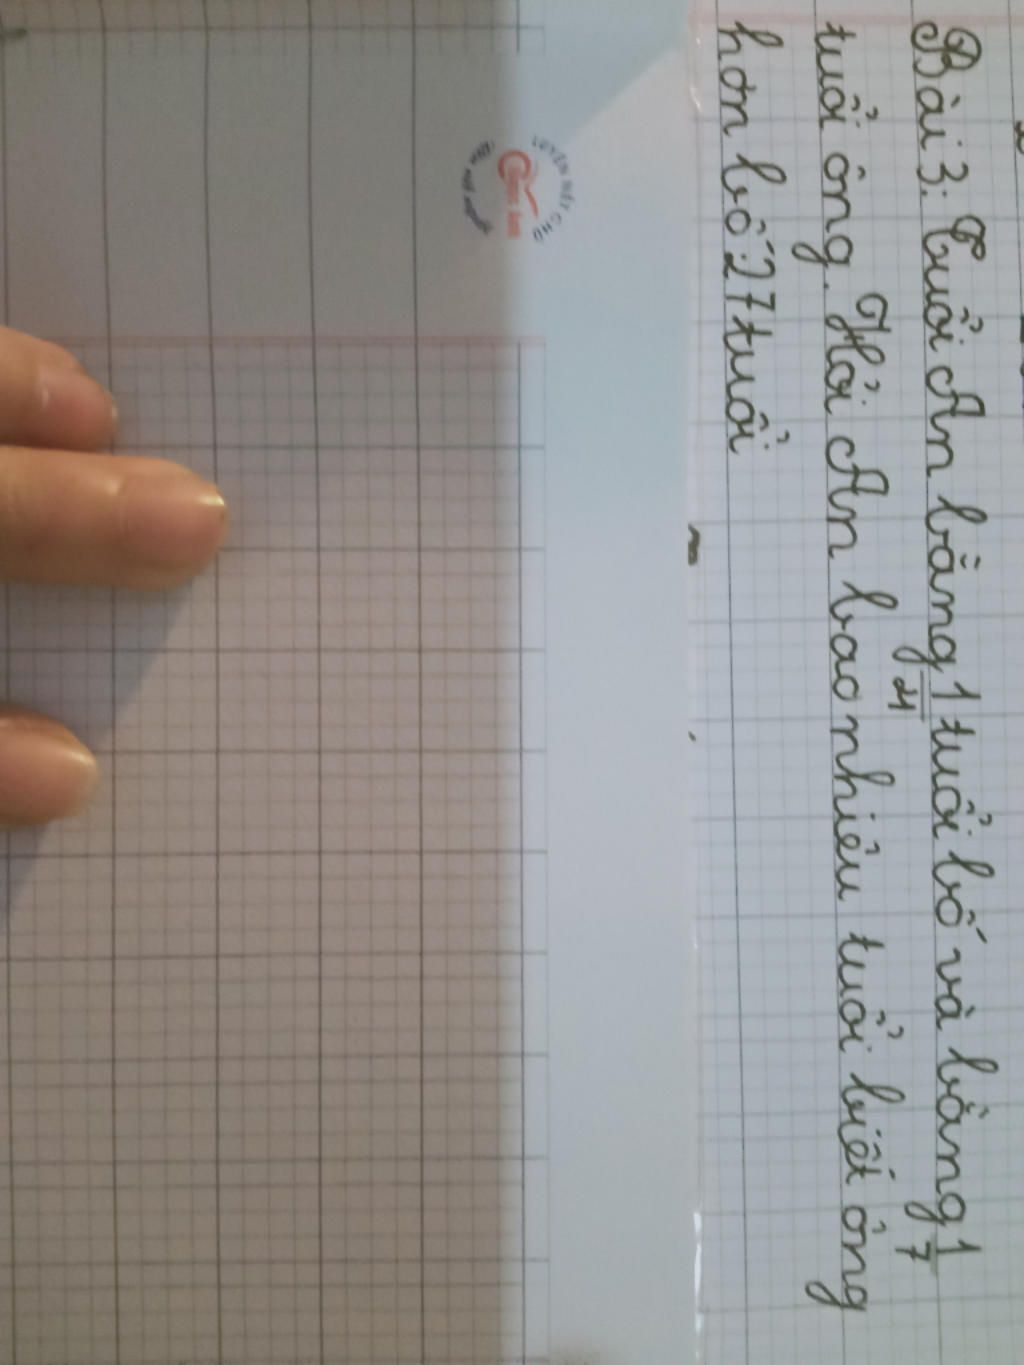 Bài 3: Tuổi An bằng 1/4 tuổi bố và bằng 1/7
tuổi ông. Hỏi An bao nhiêu tuổi biết ông
hơn bố 27 tuổi